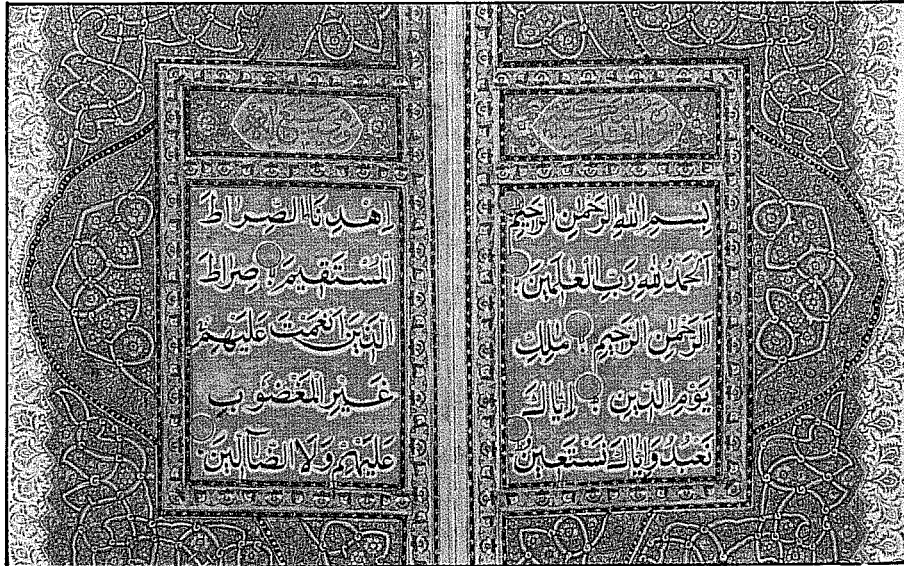 بِسْمِ اللهِ الرَّحْمٰنِ الرَّحِيمِ
اَلْحَمْدُ لِلّٰهِ رَبِّ الْعَالَمِينَ
اَلرَّحْمٰنِ الرَّحِيمِ مٰلِكِ
يَوْمِ الدِّينِ اِيَّاكَ
نَعْبُدُ وَاِيَّاكَ نَسْتَعِينُ
اِهْدِنَا الصِّرَاطَ
الْمُسْتَقِيمَ صِرَاطَ
الَّذِينَ اَنْعَمْتَ عَلَيْهِمْ
غَيْرِ الْمَغْضُوبِ
عَلَيْهِمْ وَلَا الضَّآلِّينَ